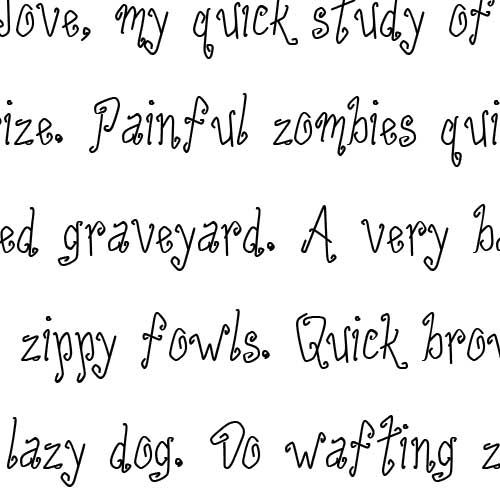 Jove, my quick study of
ize. Painful zombies qui
ed graveyard. A very ba
zippy fowls. Quick brow
lazy dog. Do wafting z